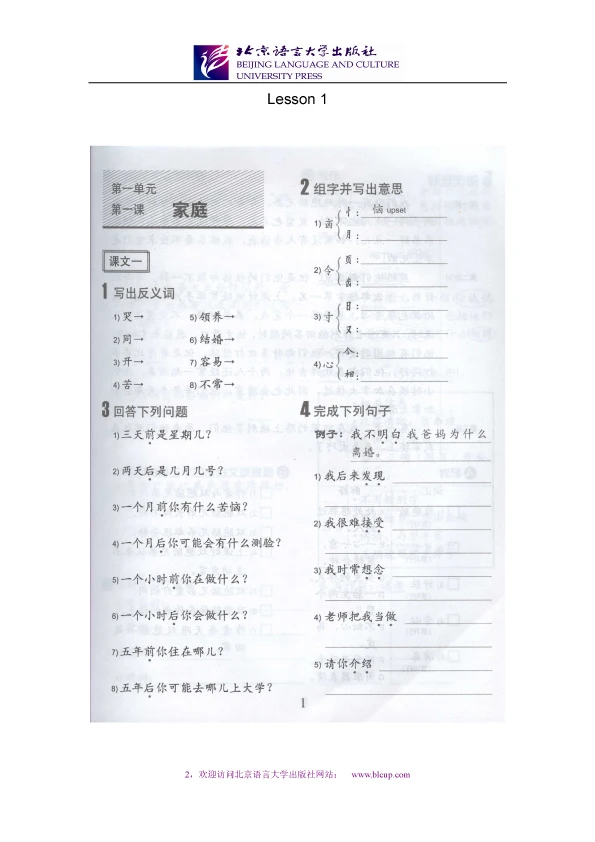 北京语言大学出版社
BEIJING LANGUAGE AND CULTURE
UNIVERSITY PRESS
Lesson 1
第一单元
第一课 家庭
课文一
1 写出反义词
1) 哭→ 5) 领养→
2) 同→ 6) 结婚→
3) 开→ 7) 容易→
4) 苦→ 8) 不常→
2 组字并写出意思
1) 卥 忄： 恼 upset
月：
2) 令 页：
齿：
3) 寸 日：
又：
4) 心 今：
相：
3 回答下列问题
1) 三天前是星期几？
2) 两天后是几月几号？
3) 一个月前你有什么苦恼？
4) 一个月后你可能会有什么测验？
5) 一个小时前你在做什么？
6) 一个小时后你会做什么？
7) 五年前你住在哪儿？
8) 五年后你可能去哪儿上大学？
4 完成下列句子
例子：我不明白我爸妈为什么
离婚。
1) 我后来发现
2) 我很难接受
3) 我时常想念
4) 老师把我当做
5) 请你介绍
1
2，欢迎访问北京语言大学出版社网站： www.blcup.com